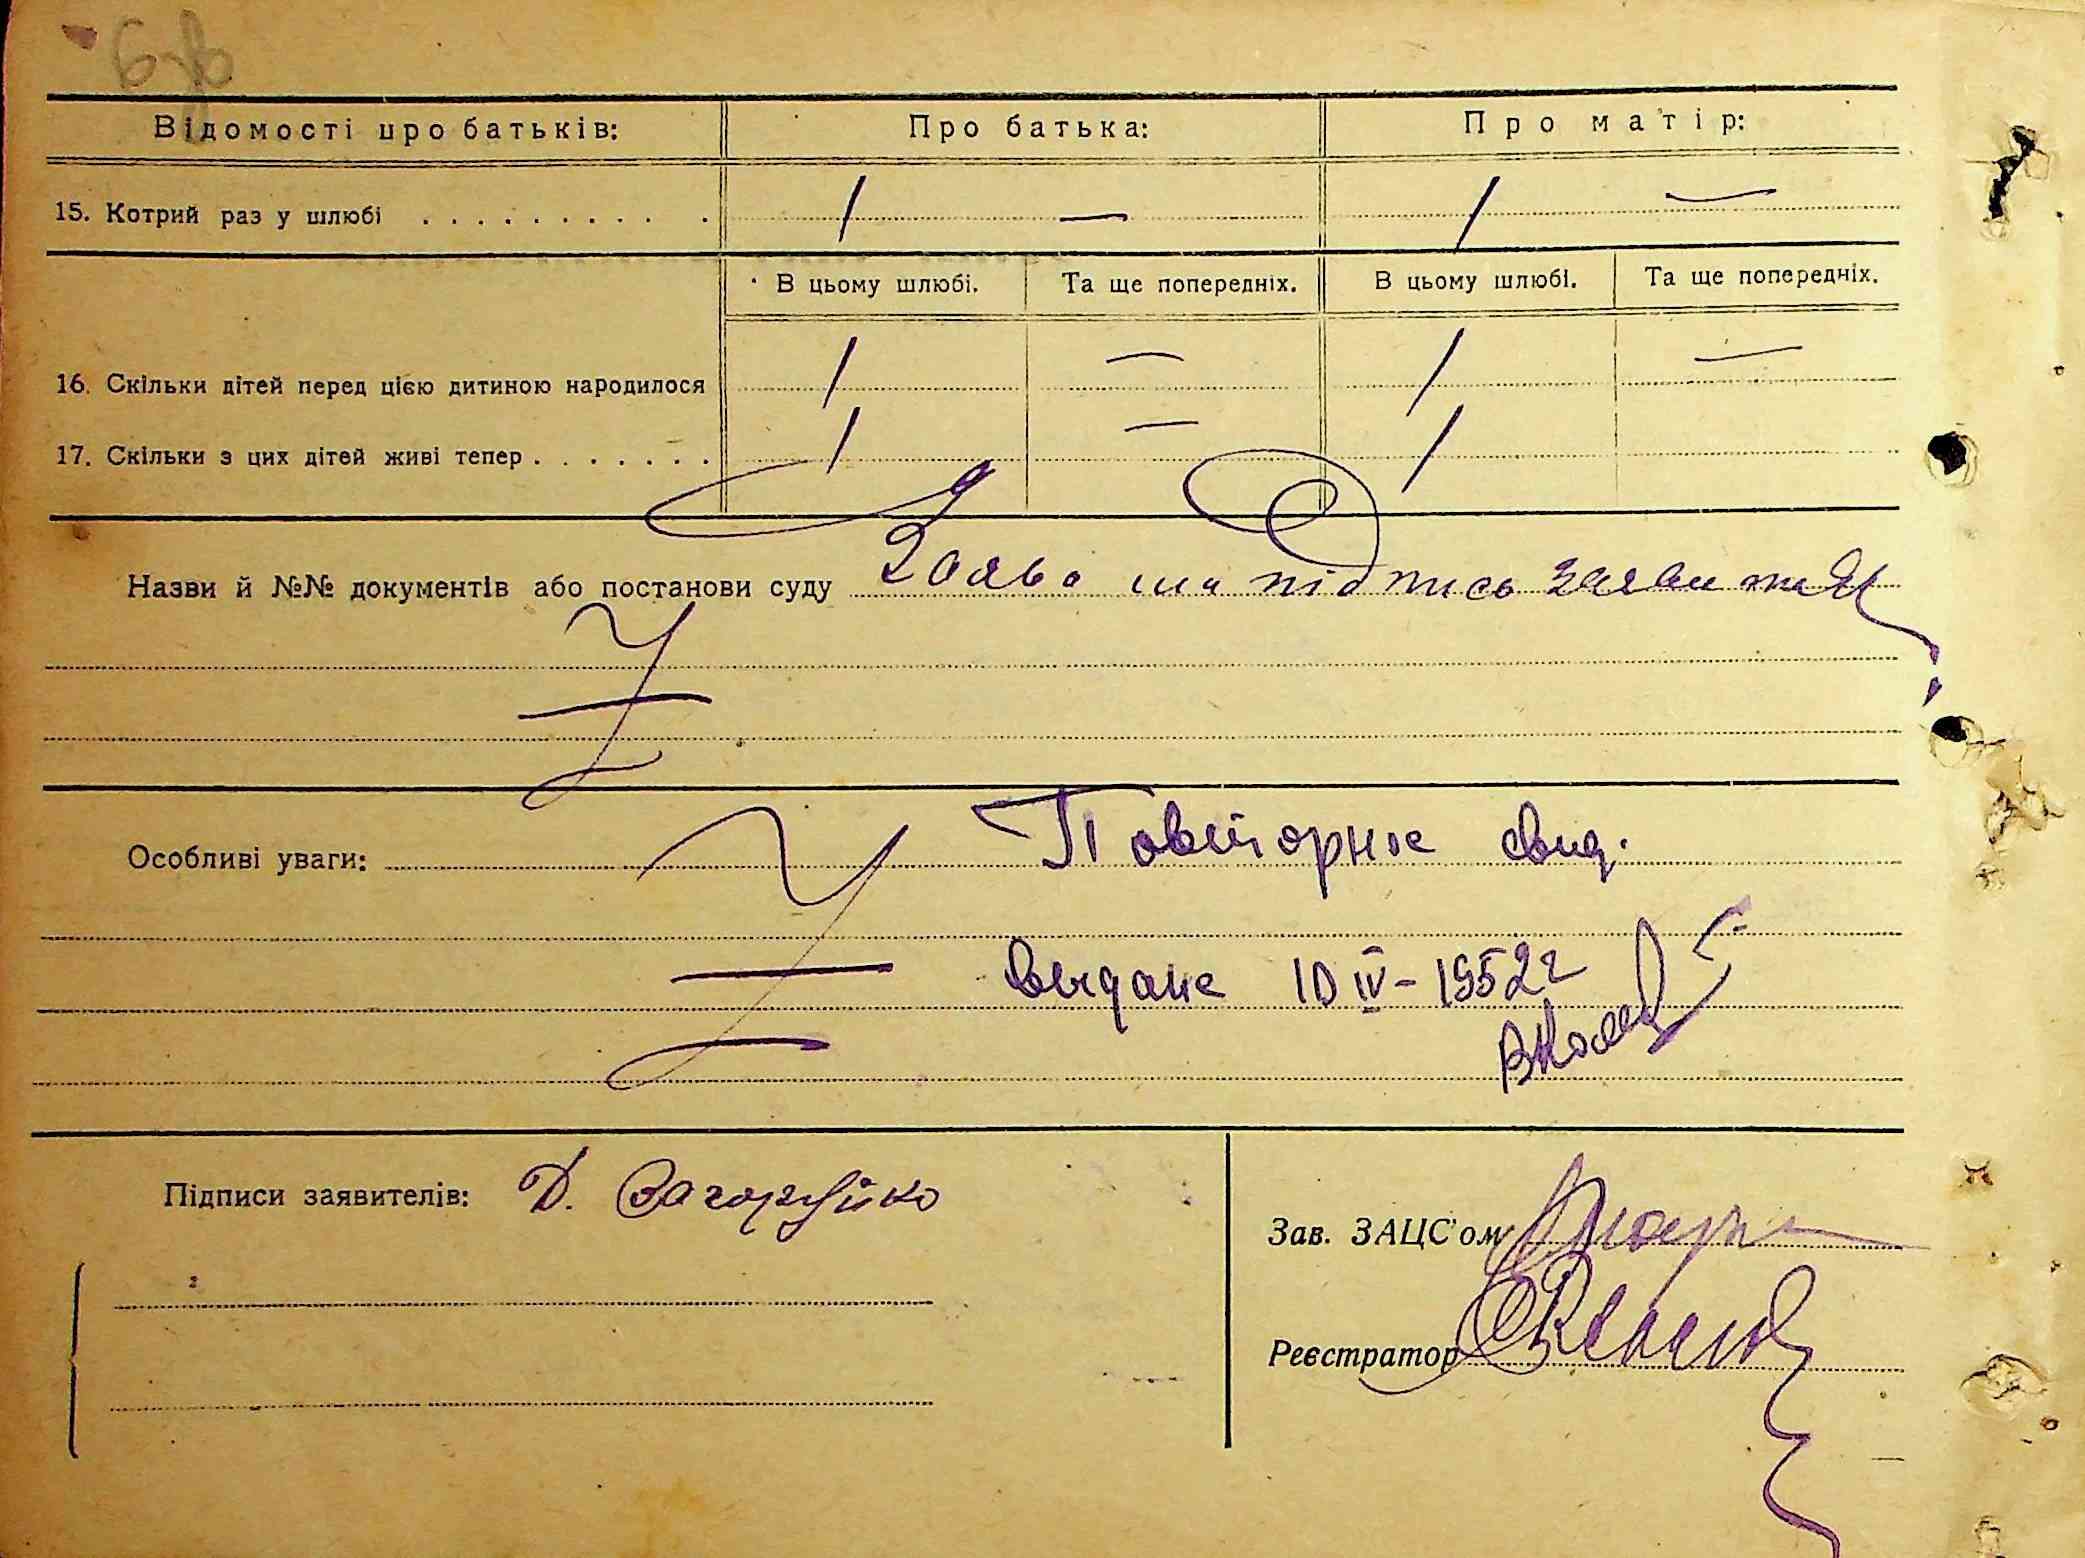 Відомості про батьків: Про батька: Про матір:
15. Котрий раз у шлюбі . . . . . . . . . . . 1 — 1 —
В цьому шлюбі. Та ще попередніх. В цьому шлюбі. Та ще попередніх.
16. Скільки дітей перед цією дитиною народилося 1 — 1 —
17. Скільки з цих дітей живі тепер . . . . . . . 1 — 1
Назви й №№ документів або постанови суду Заява та підпись заявителя
Особливі уваги: Повторное свид.
выдане 10 IV - 1952 г
Підписи заявителів: Д. Загоруйко
Зав. ЗАЦС'ом
Реєстратор